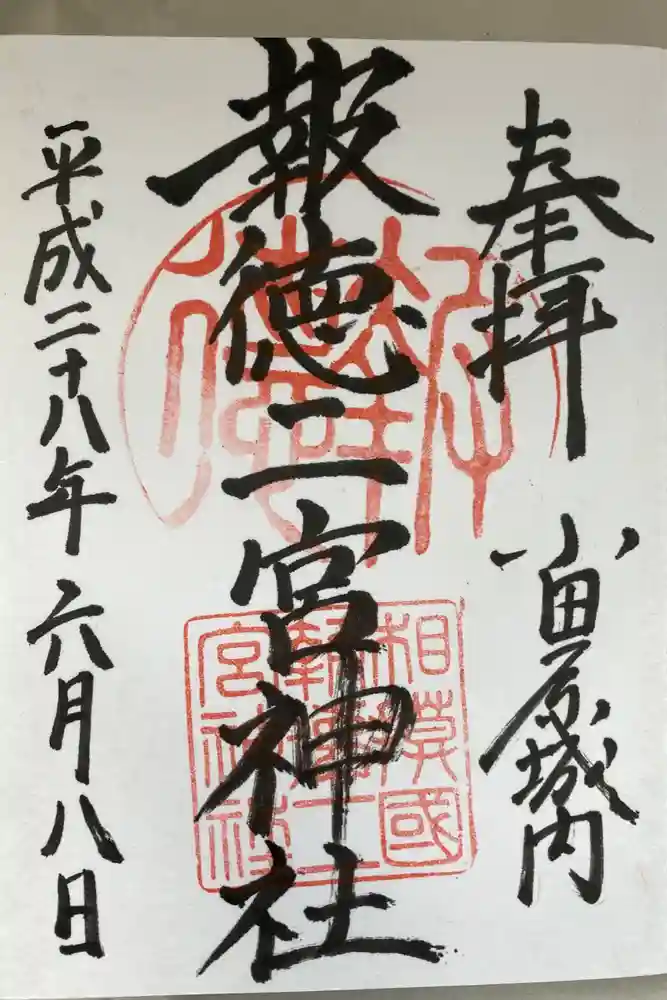 奉拝
小田原城内
報徳二宮神社
相模國
報徳二
宮神社
平成二十八年六月八日